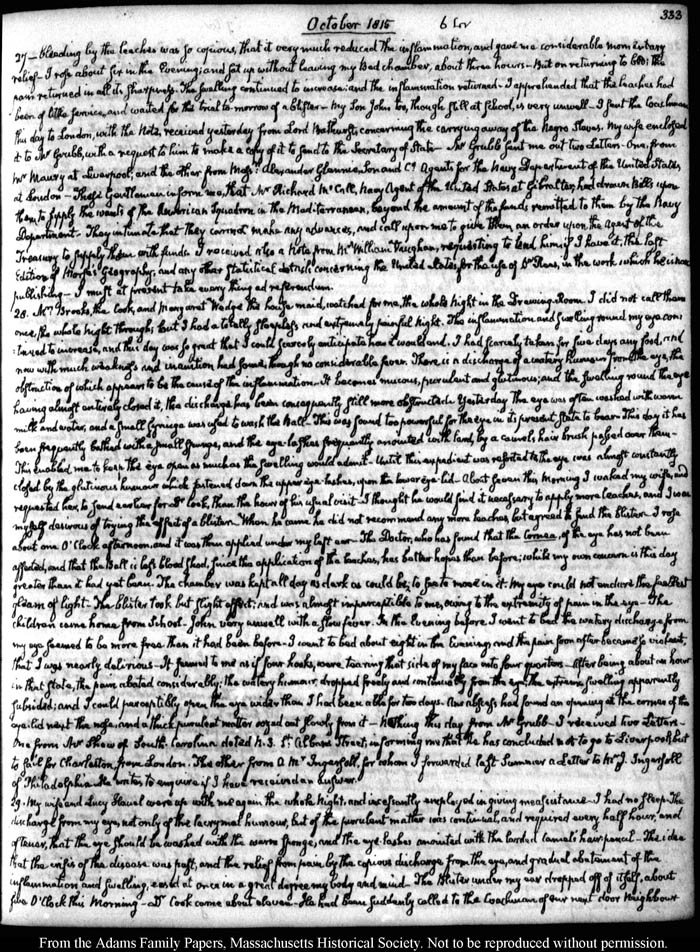 333
October 1815 6 Cov
27_ Bleeding by the leaches was so copious, that it very much reduced the inflammation, and gave me considerable momentary
relief_ I rose about six in the Evening; and sat up without leaving my Bed chamber, about three hours_ But on returning to bed; the
pain returned in all its sharpness. The swelling continued to increase: and the inflammation returned_ I apprehended that the leaches had
been of little service, and waited for the trial to-morrow of a blister_ My Son John too, though still at school, is very unwell_ I sent the Coachman
this day to London, with the Note, received yesterday from Lord Bathurst, concerning the carrying away of the Negro Slaves. My wife enclosed
it to Mr Grubb, with a request to him to make a copy of it to send to the Secretary of State_ Mr Grubb sent me out two Letters. One, from
Mr Maury at Liverpool, and the other from Messrs Alexander Glennie, Son and Co Agents for the Navy Department of the United States,
at London_ These Gentlemen inform me, that Mr Richard McCall, Navy Agent of the United States at Gibraltar, had drawn bills upon
them, to supply the wants of the American Squadron in the Mediterranean, beyond the amount of the funds remitted to them by the Navy
Department_ They intimate that they cannot make any advances, and call upon me to give them an order upon the Agent of the
Treasury to supply them with funds. I received also a Note from Mr William Vaughan, requesting to lend him, if I have it, the last
Edition of Morse's Geography, and any other statistical details, concerning the United States, for the use of Dr Rees, in the work which he is now
publishing_ I must at present take every thing ad referendum.
28. Mrs Brooks, the Cook, and Margaret Wedge the house maid, watched for me, the whole Night in the Drawing-Room. I did not call them
once, the whole night through; but I had a totally sleepless and extremely painful Night. The inflammation and swelling round my eye con-
tinued to increase, and this day was so great that I could scarcely anticipate how it would end. I had scarcely taken for five days any food, and
now with much weakness and inanition had some, though no considerable fever. There is a discharge of a watery humour from the eye, the
obstruction of which appears to be the cause of the inflammation_ It becomes mucous, purulent and glutinous; and the swelling round the eye
having almost entirely closed it, the discharge has been consequently still more obstructed_ Yesterday the eye was often washed with warm
milk and water, and a small syringe was used to wash the Ball. This was found too powerful for the eye in its present state to bear_ This day it has
been frequently bathed with a small spunge, and the eye-lashes frequently anointed with lard, by a camel's hair brush passed over them_
This enabled me to keep the eye open as much as the swelling would admit_ Until this expedient was resorted to the eye was almost constantly
closed by the glutinous humour which fastened down the upper eye-lashes, upon the lower eye-lid_ About seven this Morning I waked my wife, and
requested her, to send earlier for Dr Cook, than the hour of his usual visit_ I thought he would find it necessary to apply more leaches, and I was
myself desirous of trying the effect of a blister. When he came he did not recommend any more leaches but agreed to find the blister_ I rose
about one O'Clock afternoon, and it was then applied under my left ear_ The Doctor, who has found that the Cornea, of the eye has not been
affected, and that the Ball is less blood shed, since the application of the leaches, has better hopes than before; while my own concern is this day
greater than it had yet been. The chamber was kept all day as dark as could be, to see to move in it. My eye could not endure the smallest
gleam of light_ The blister took but slight effect, and was almost imperceptible to me, owing to the extremity of pain in the eye_ The
children came home from School. John very unwell with a slow fever. In the evening before I went to bed the watery discharge from
my eye seemed to be more free than it had been before_ I went to bed about eight in the Evening, and the pain soon after became so violent,
that I was nearly delirious_ It seemed to me as if four hooks, were tearing that side of my face into four quarters_ After being about an hour
in that state, the pain abated considerably; the watery humour, dropped freely and continually from the eye, the extreme swelling apparently
subsided; and I could perceptibly open the eye wider than I had been able for two days. An abscess had found an opening at the corner of the
eye-lid next the nose, and a thick purulent matter oozed out slowly from it_ Nothing this day from Mr Grubb_ I received two Letters_
One from Mr Shaw of South-Carolina dated N. 3. St Albans Street, informing me that he has concluded not to go to Liverpool; but
to sail for Charleston, from London. The other from a Mr Ingersoll, for whom I forwarded last Summer a Letter to Mr J. Ingersoll
of Philadelphia_ He writes to enquire if I have received an answer.
29. My wife and Lucy Houel were up with me again the whole Night, and incessantly employed in giving me assistance_ I had no sleep. The
discharge from my eye, not only of the lacrymal humour, but of the purulent matter was continual, and required every half hour, and
oftener, that the eye should be washed with the warm spunge, and the eye-lashes anointed with the larded camel's hair pencil_ The idea
that the crisis of the disease was past, and the relief from pain by the copious discharge from the eye, and gradual abatement of the
inflammation and swelling, eased at once in a great degree my body and mind_ The Blister under my ear dropped off of itself, about
five O'Clock this Morning_ Dr Cook came about eleven_ He had been suddenly called to the Coachman of our next door Neighbour
From the Adams Family Papers, Massachusetts Historical Society. Not to be reproduced without permission.